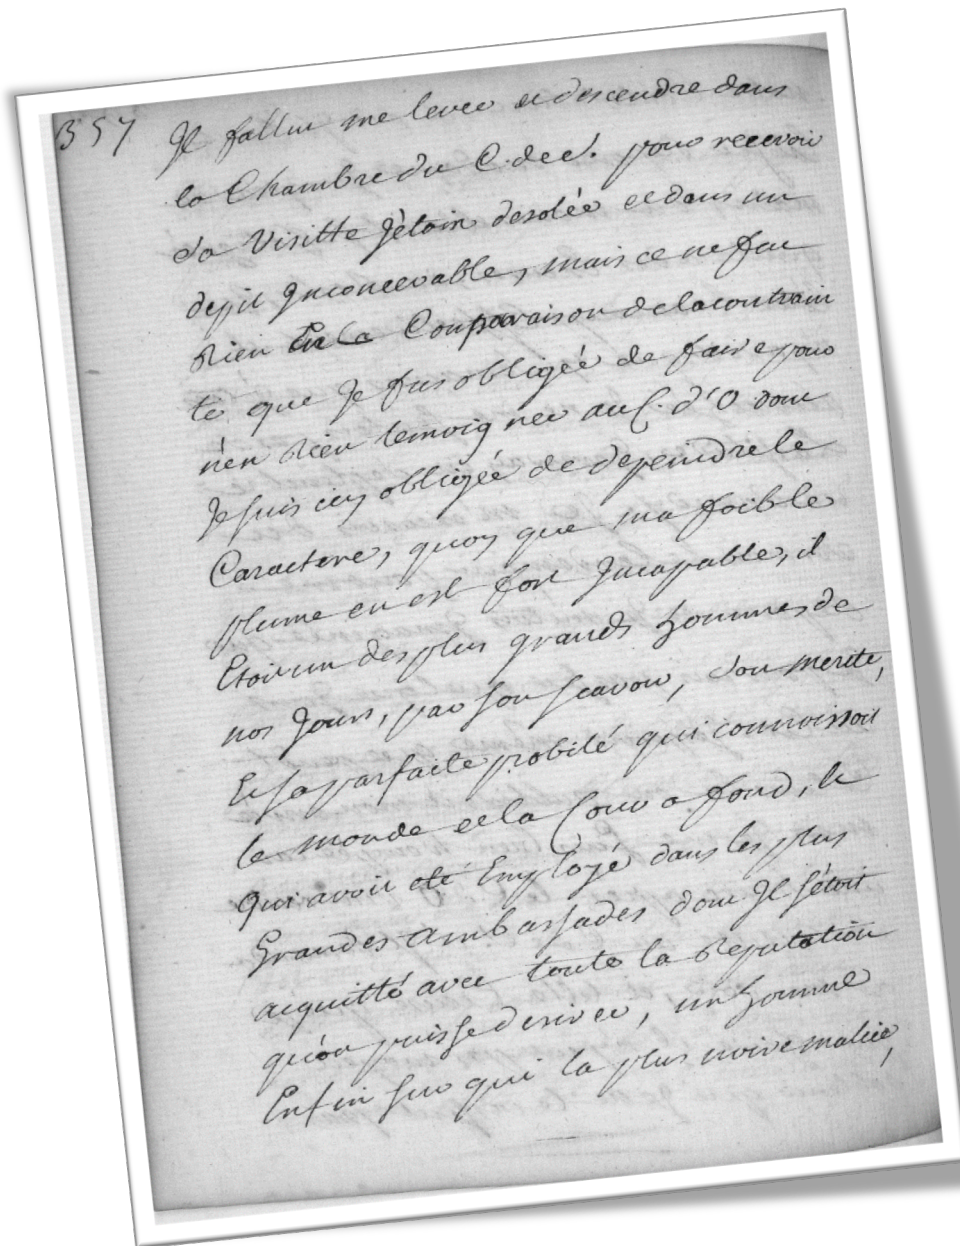 357
Il fallut me lever et descendre dans
la Chambre du C. de C. pour recevoir
Sa Visitte J'étois desolée et dans un
depit Inconcevable, mais ce ne fut
Rien En la Comparaison de la contrain
te que Je fus obligée de faire pour
n'en Rien temoigner au C. d'O dont
Je suis icy obligée de depeindre le
Caractere, quoy que ma foible
plume en est fort Incapable, il
Etoit un des plus grands hommes de
nos Jours, par son scavoir, Son merite,
Et Sa parfaite probité qui connoissoit
le monde et la Cour a fond, Et
Qui avoit eté Employé dans les plus
Grandes Ambassades dont Il s'étoit
acquitté avec toute la Reputation
qu'on puisse desirer, un homme
Enfin sur qui la plus noire malice,